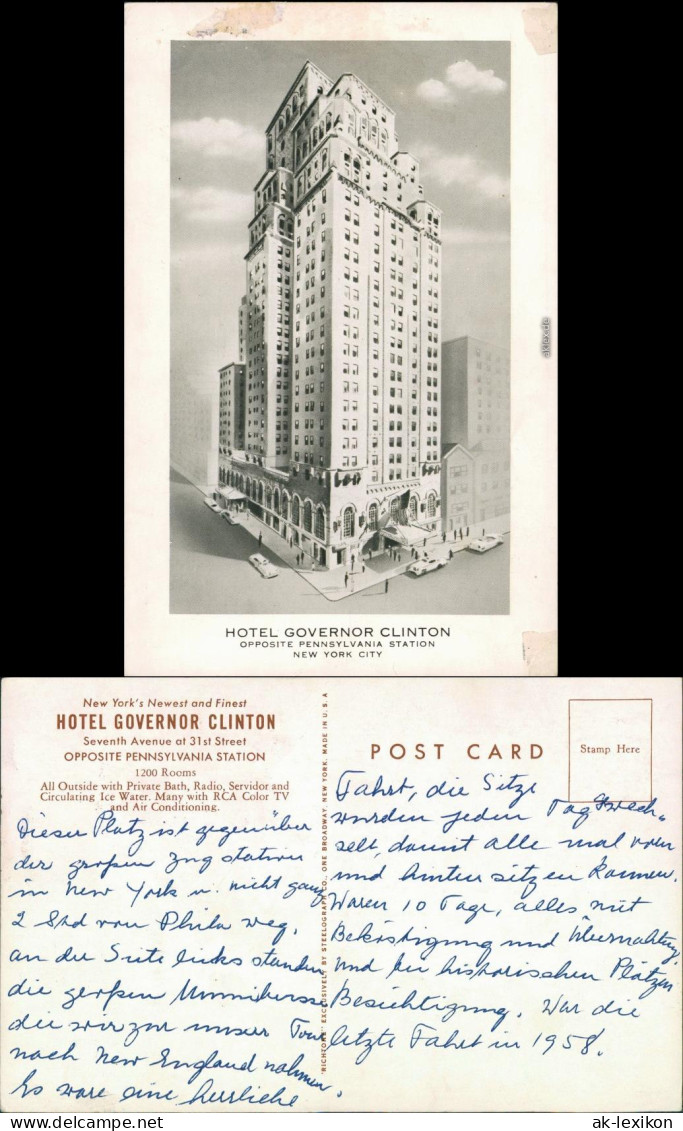 HOTEL GOVERNOR CLINTON
OPPOSITE PENNSYLVANIA STATION
NEW YORK CITY
aklex.de
New York's Newest and Finest
HOTEL GOVERNOR CLINTON
Seventh Avenue at 31st Street
OPPOSITE PENNSYLVANIA STATION
1200 Rooms
All Outside with Private Bath, Radio, Servidor and
Circulating Ice Water. Many with RCA Color TV
and Air Conditioning.
Dieser Platz ist gegenüber
der großen Zugstation
in New York u. nicht ganz
2 Std von Phila weg,
an der Seite links standen
die großen Omnibusse
die wir zur unser Tour
nach New England nahmen.
Es ware eine herrliche
"RICHTONE" EXCLUSIVELY BY STEELOGRAPH CO., ONE BROADWAY, NEW YORK. MADE IN U.S.A
POST CARD
Stamp Here
Fahrt, die Sitze
wurden jeden Tag gewech-
selt, damit alle mal vorn
und hinten sitzen konnen.
Waren 10 Tage, alles mit
Beköstigung und Übernachtung,
und die historischen Plätzen
Besichtigung. War die
letzte Fahrt in 1958.
www.delcampe.net
ak-lexikon